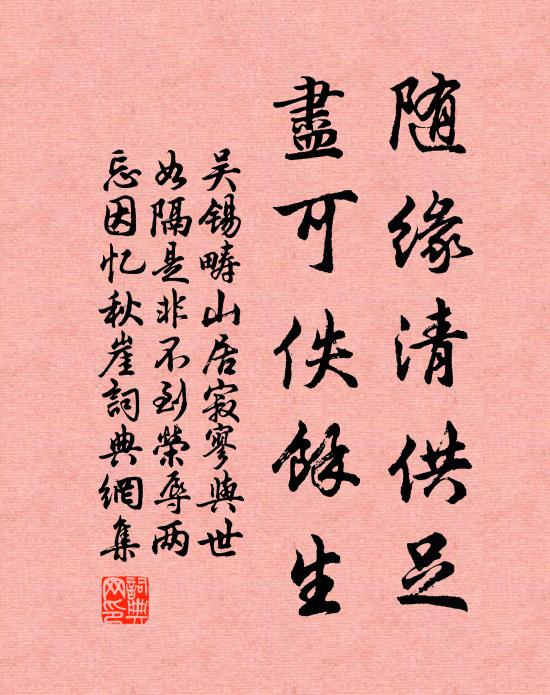 随緣清供足
盡可佚餘生
吴锡畴山居寂寥與世
如隔是非不到榮辱两
忘因忆秋崖詞典網集
詞典网印